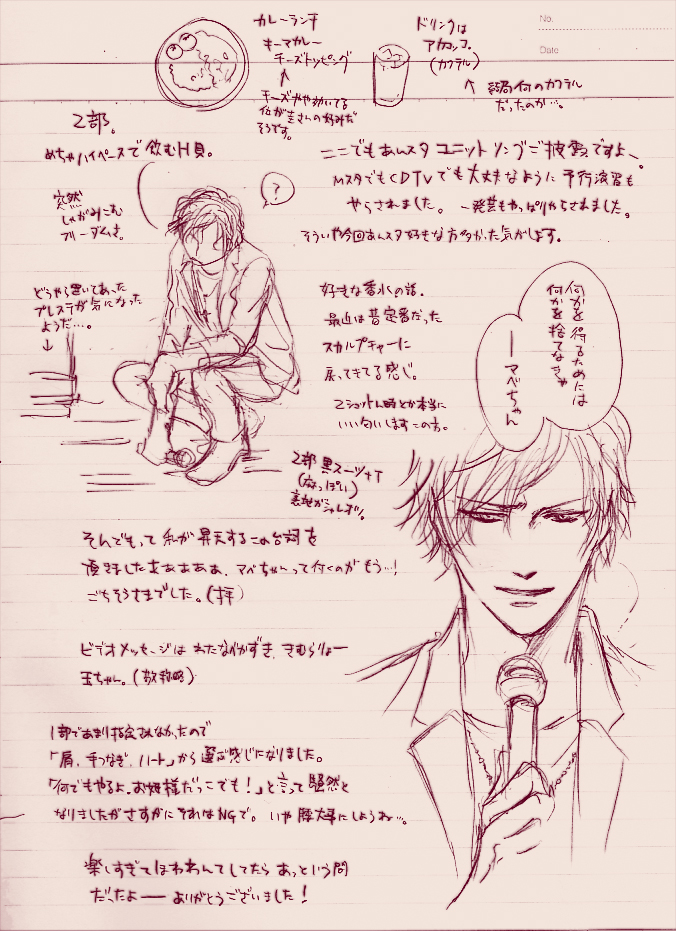 No.
Date
カレーランチ
キーマカレー
チーズトッピング
↑
チーズがや効いてる
位が圭さんの好みだ
そうです。
ドリンクは
アカッコ。
(カクテル)
↑ 結局何のカクテル
だったのか…。
2部。
めちゃハイペースで飲むH員。
突然
しゃがみこむ
?
どうやら置いてあった
プレステが気になった
ようだ…。
↓
ここでもあんスタ ユニットソングご披露ですよ、
MステでもCDTVでも大丈夫なように予行演習も
やらされました。一発芸もやっぱりやらされました。
そういや今回あんスタ好きな方多かった気がします。
好きな香水の話。
最近は昔定番だった
スカルプチャーに
戻ってきてる感じ。
2ショットん時とか本当に
いい匂いしますこの方。
何かを得るためには
何かを捨てなきゃ
ーマベちゃん
2部 黒スーツ+T
(麻っぽい)
裏地がシャレオツ。
そんでもって私が昇天するこの台詞を
頂きましたぁぁぁぁ、マベちゃんって付くのがもう…!
ごちそうさまでした。(拝)
ビデオメッセージはわたなべかずき、きむらりょー
玉ちゃん。(敬称略)
1部であまり指定されなかったので
「肩、手つなぎ、ハート」から選ぶ感じになりました。
「何でもやるよ、お姫様だっこでも!」と言って騒然と
なりましたがさすがにそれはNGで。いや腰大事にしようね…。
楽しすぎてほわわんてしてたらあっという間
だったよーーありがとうございました!